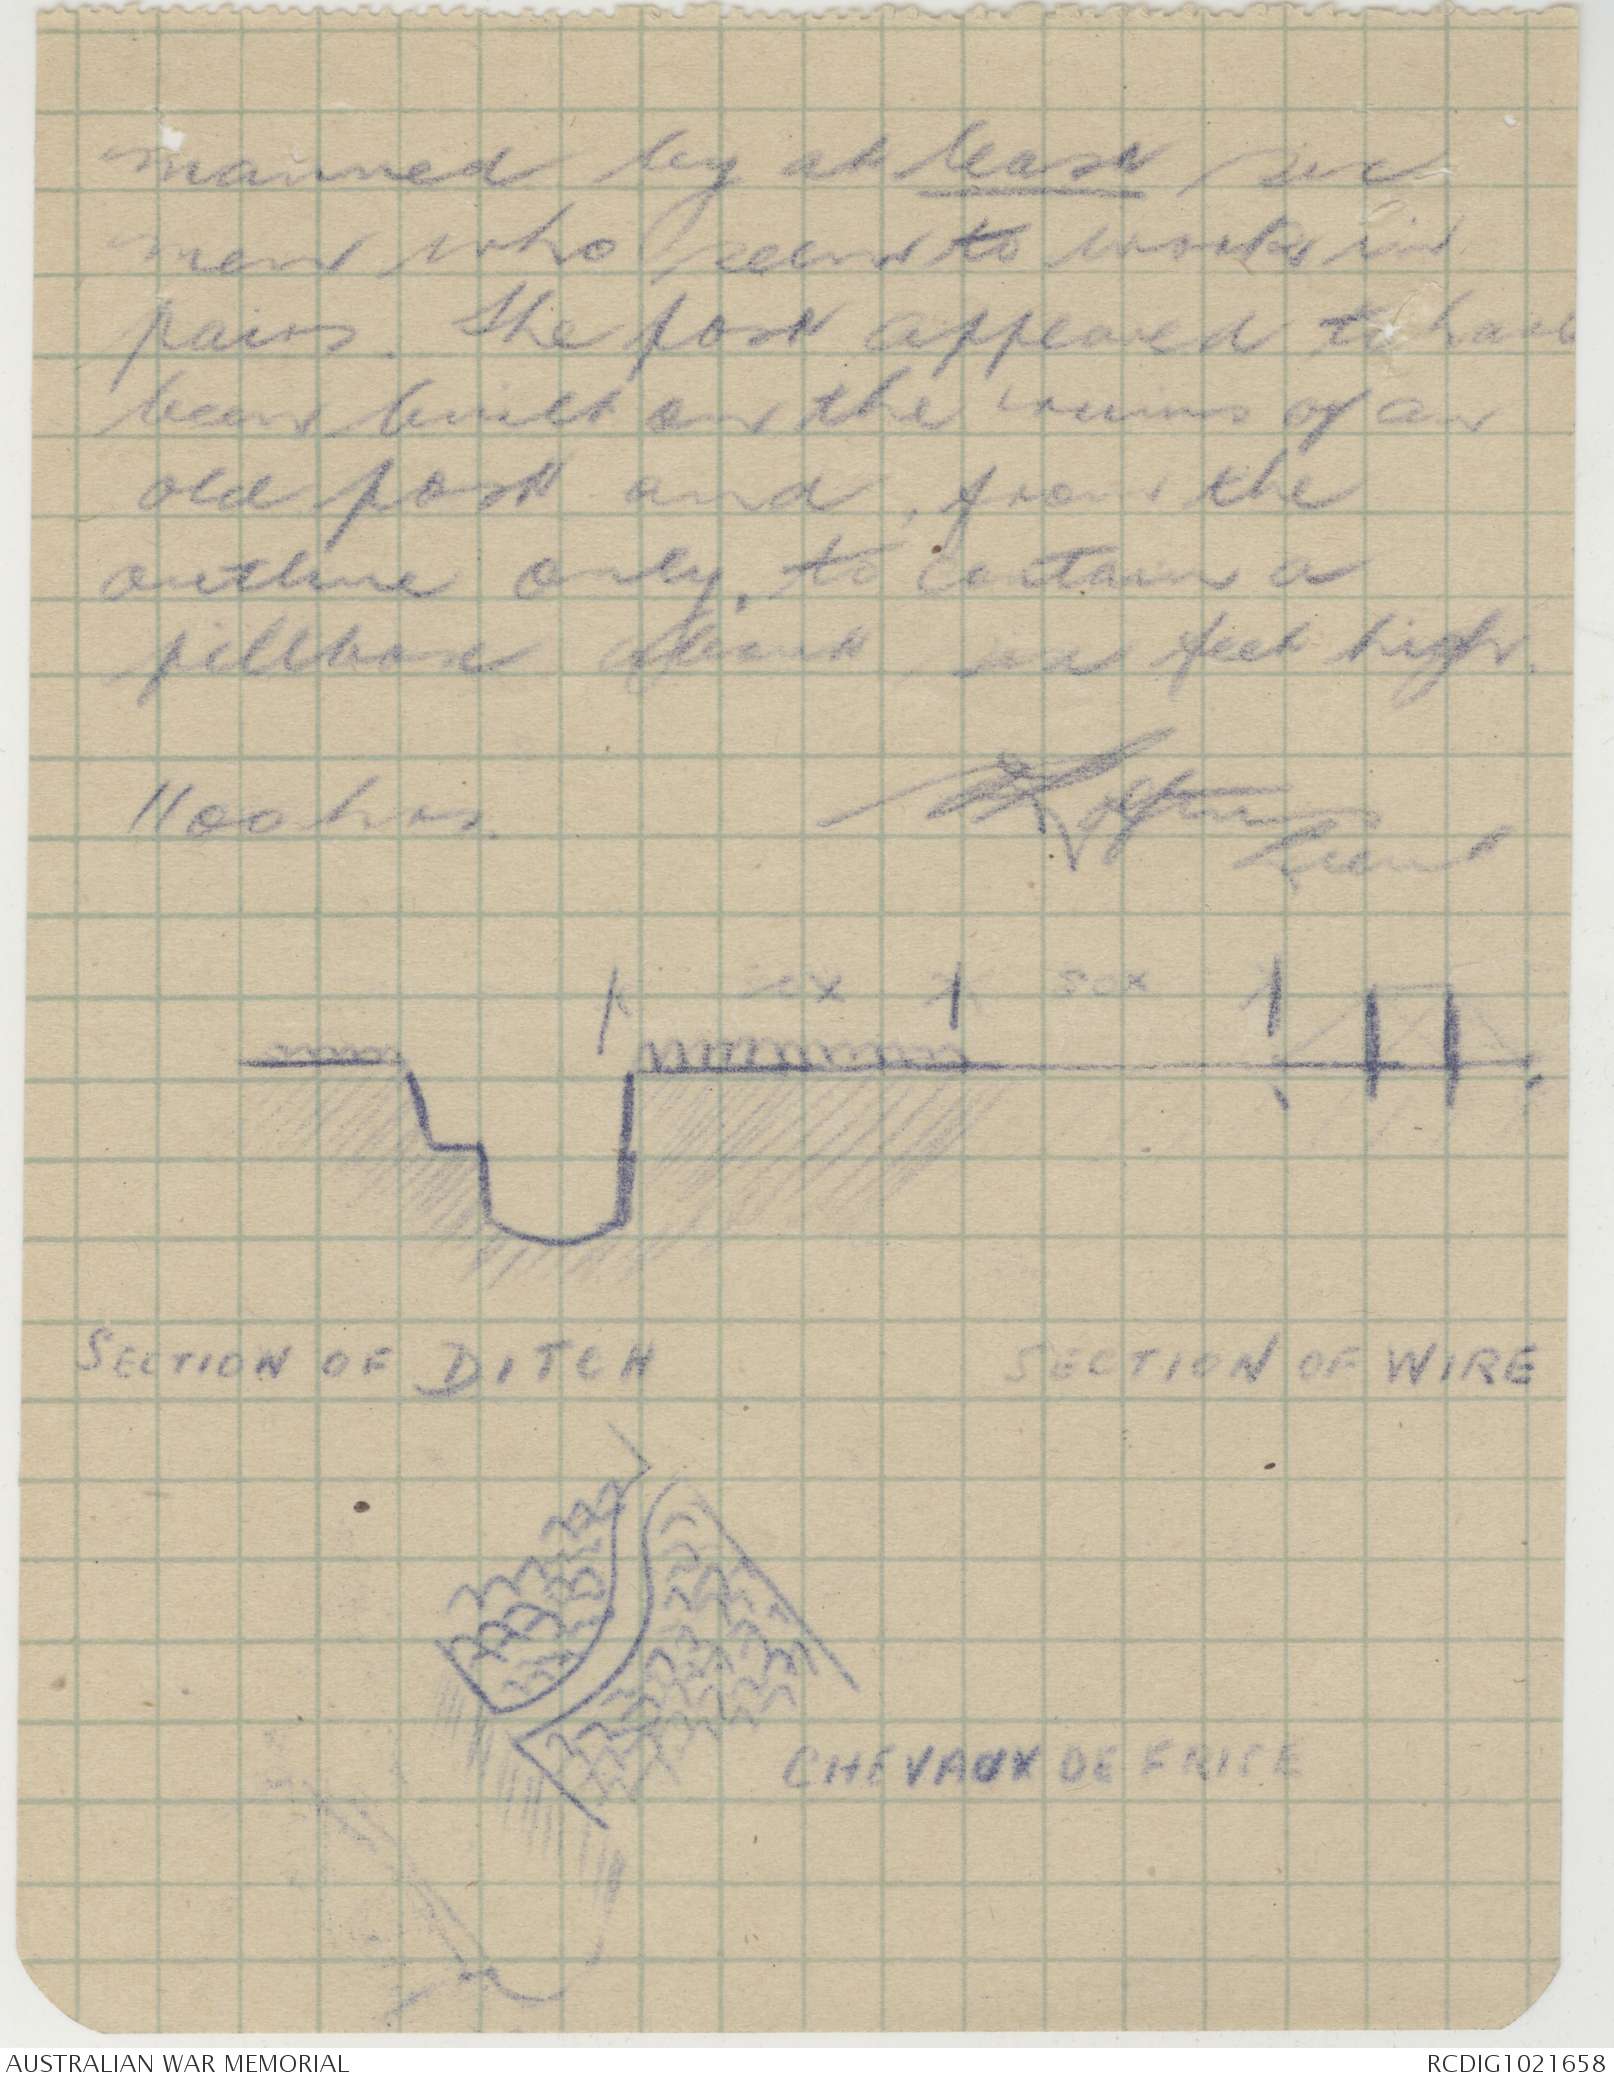 manned by at least six
men who seem to work in
pairs. The post appeared to have
been built on the ruins of an
old post and, from the
outline only, to contain a
pillbox about six feet high.
1100 hrs.
Lieut
SECTION OF DITCH
SECTION OF WIRE
CHEVAUX DE FRISE
AUSTRALIAN WAR MEMORIAL
RCDIG1021658